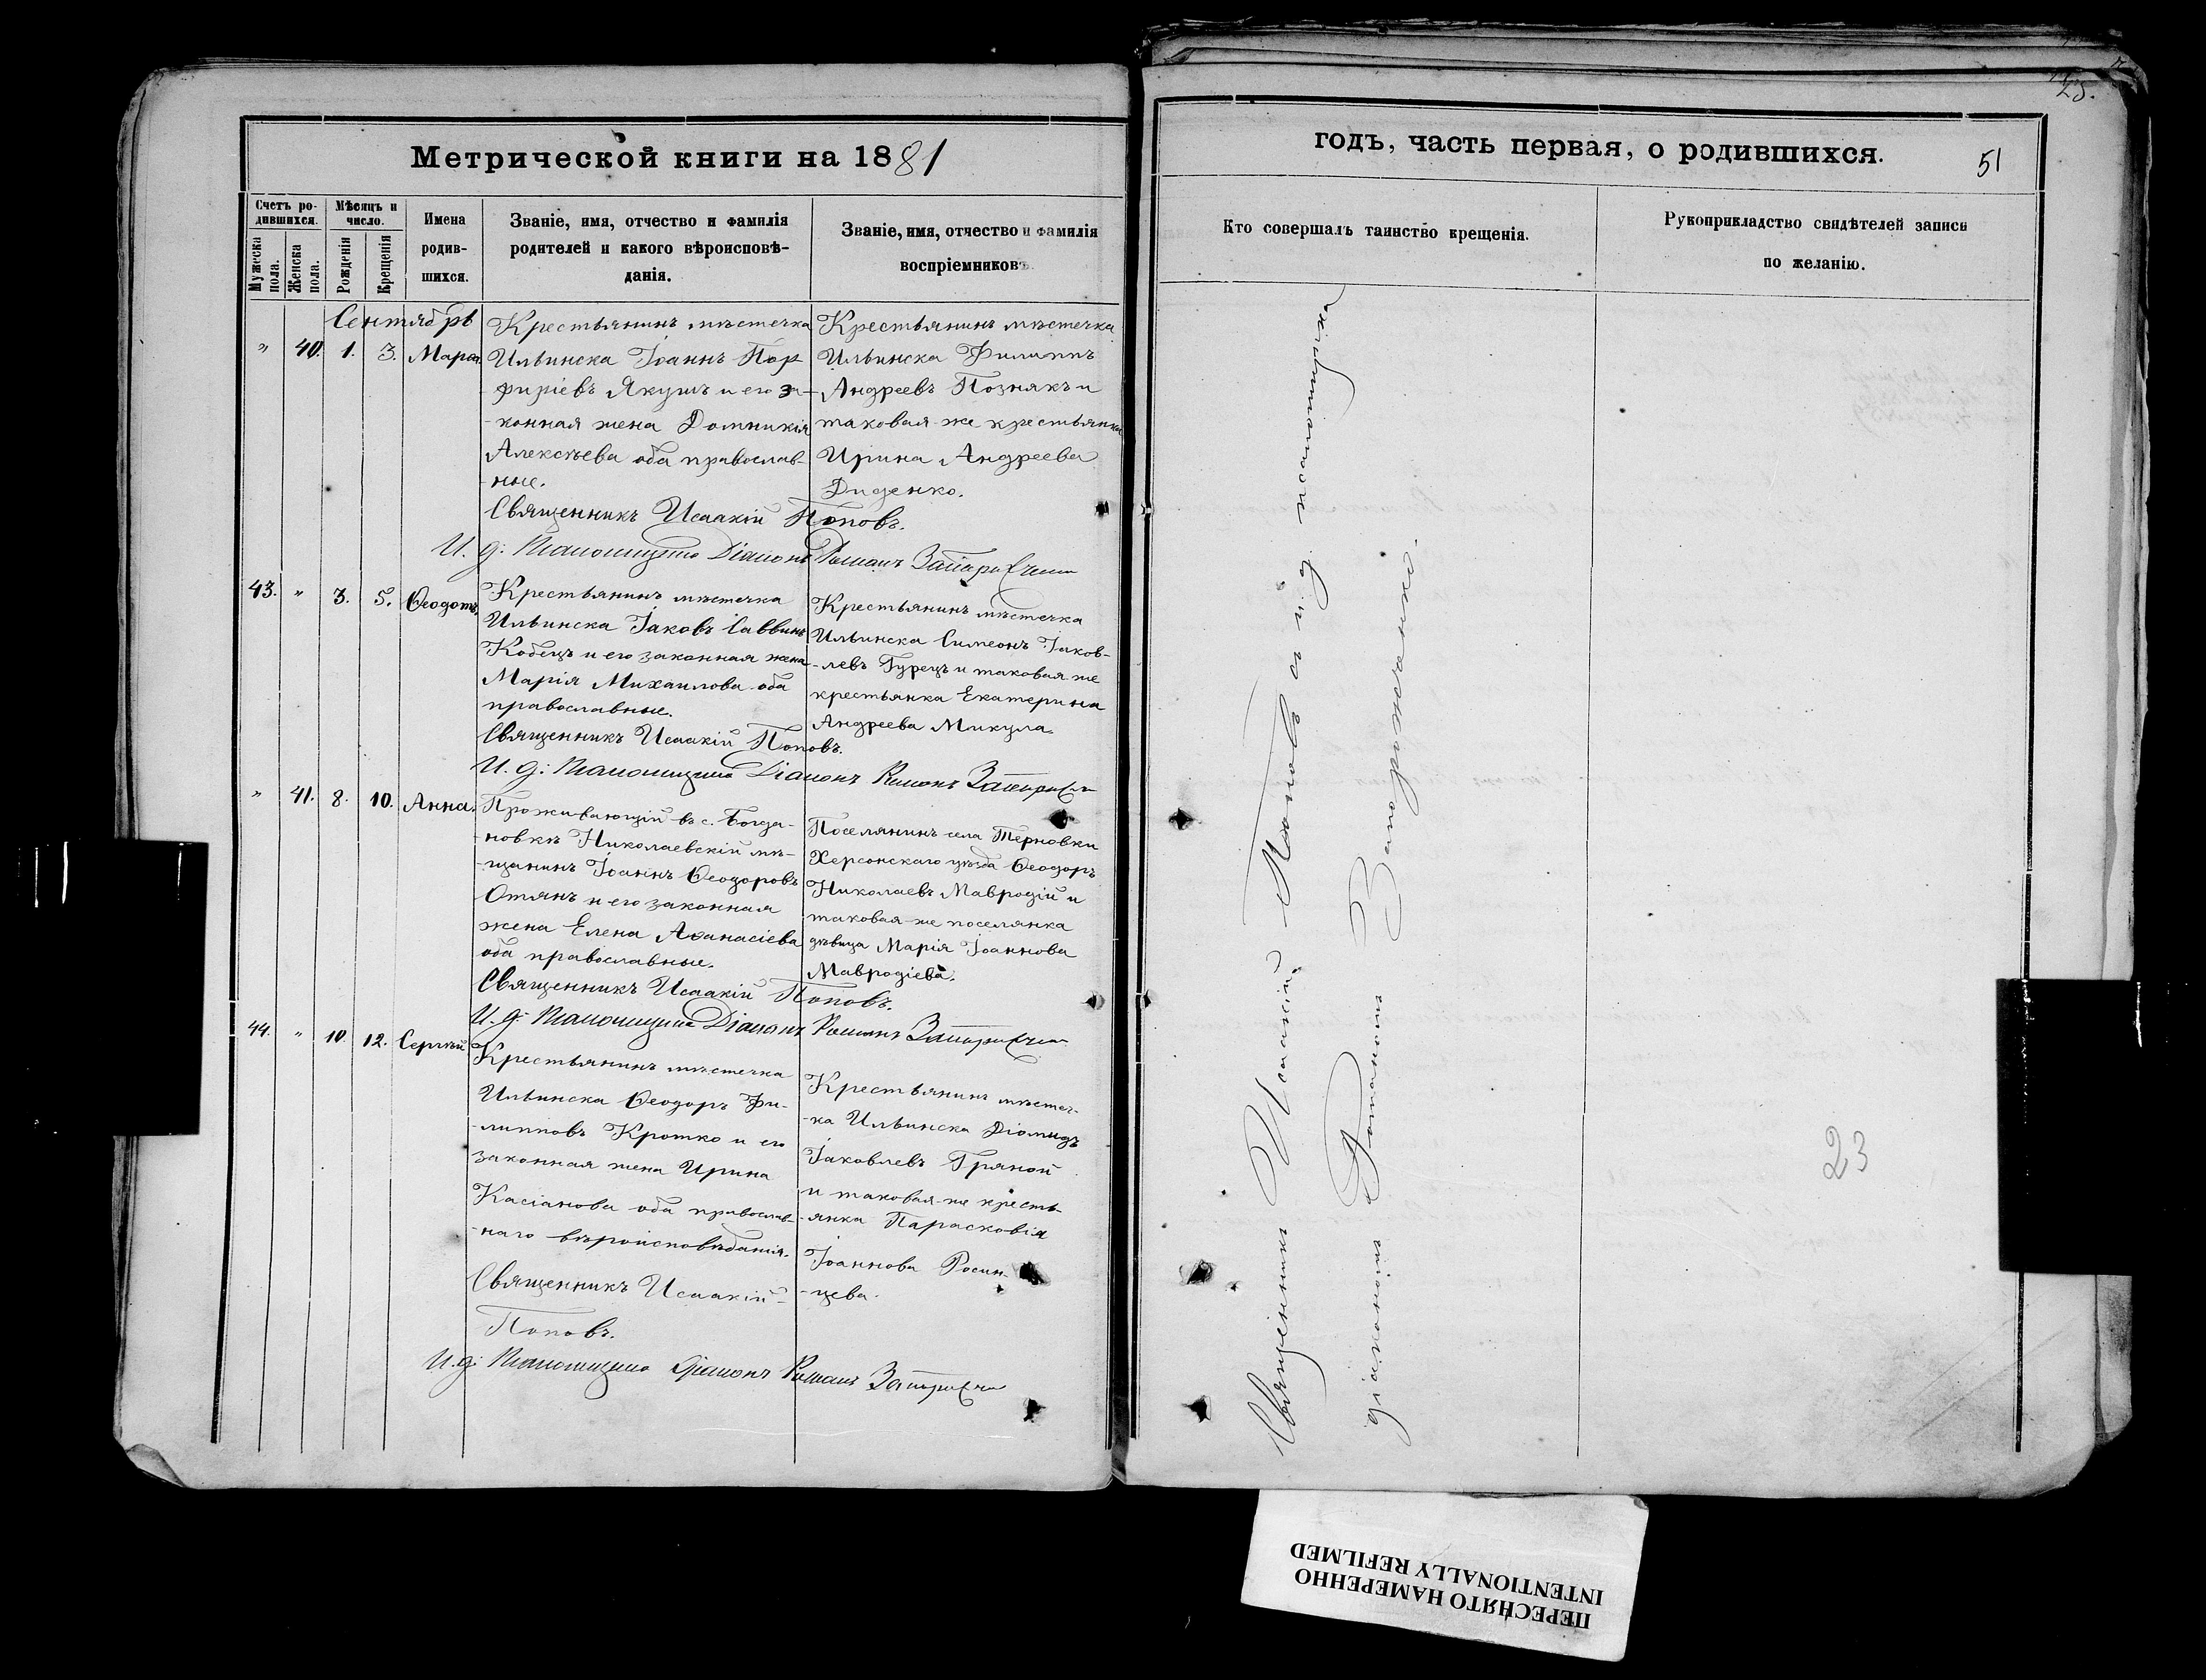 Метрической книги на 1881
Счетъ ро-
дившихся.
Мѣсяцъ и
число.
Мужеска
пола.
Женска
пола.
Рожденія
Крещенія
Имена
родив-
шихся.
Званіе, имя, отчество и фамилія
родителей и какого вѣроисповѣ-
данія.
Званіе, имя, отчество и фамилія
воспріемниковъ.
Сентябрь
" 40. 1. 3. Мара
Крестьянинъ мѣстечка
Ильинска Іоаннъ Пор
фиріевъ Якушъ и его за-
-конная жена Домникія
Алексѣева оба православ-
-ные.
Крестьянинъ мѣстечка
Ильинска Филиппъ
Андреевъ Познякъ и
таковая-же крестьянка
Ирина Андреева
Диденко.
Священникъ Исаакій Поповъ.
И. д: псаломщика Діаконъ Романъ
43. " 3. 5. Ѳеодотъ
Крестьянинъ мѣстечка
Ильинска Іаковъ Саввинъ
Кобецъ и его законная жена
Марія Михаилова оба
православные.
Крестьянинъ мѣстечка
Ильинска Симеонъ Іаков-
-левъ Гурецъ и таковая же
крестьянка Екатерина
Андреева Микула.
Священникъ Исаакій Поповъ.
И. д: псаломщика Діаконъ Романъ
" 41. 8. 10. Анна.
Проживающій въ с. Богда-
-новкѣ Николаевскій мѣ-
-щанинъ Іоаннъ Ѳеодоровъ
Отянъ и его законная
жена Елена Аѳанасіева
оба православные.
Поселянинъ села Терновки
Херсонскаго уѣзда Ѳеодоръ
Николаевъ Мавродій и
таковая-же поселянка
дѣвица Марія Іоаннова
Мавродіева.
Священникъ Исаакій Поповъ.
И. д: псаломщика Діаконъ Романъ
44. " 10. 12. Сергѣй
Крестьянинъ мѣстечка
Ильинска Ѳеодоръ Фи-
-липповъ Кротко и его
законная жена Ирина
Касіанова оба православ-
-наго вѣроисповѣданія.
Крестьянинъ мѣстеч-
-ка Ильинска Діомидъ
Іаковлевъ Гряной
и таковая-же кресть-
-янка Парасковія
Іоаннова Росин-
-цева.
Священникъ Исаакій
Поповъ.
И. д: псаломщика Діаконъ Романъ
25.
годъ, часть первая, о родившихся.
51
Кто совершалъ таинство крещенія.
Рукоприкладство свидѣтелей записи
по желанію.
Священникъ Исаакій Поповъ съ и д псаломщика
діакономъ Романомъ Запорожченко.
23
ПЕРЕСНЯТО НАМЕРЕННО
INTENTIONALLY REFILMED